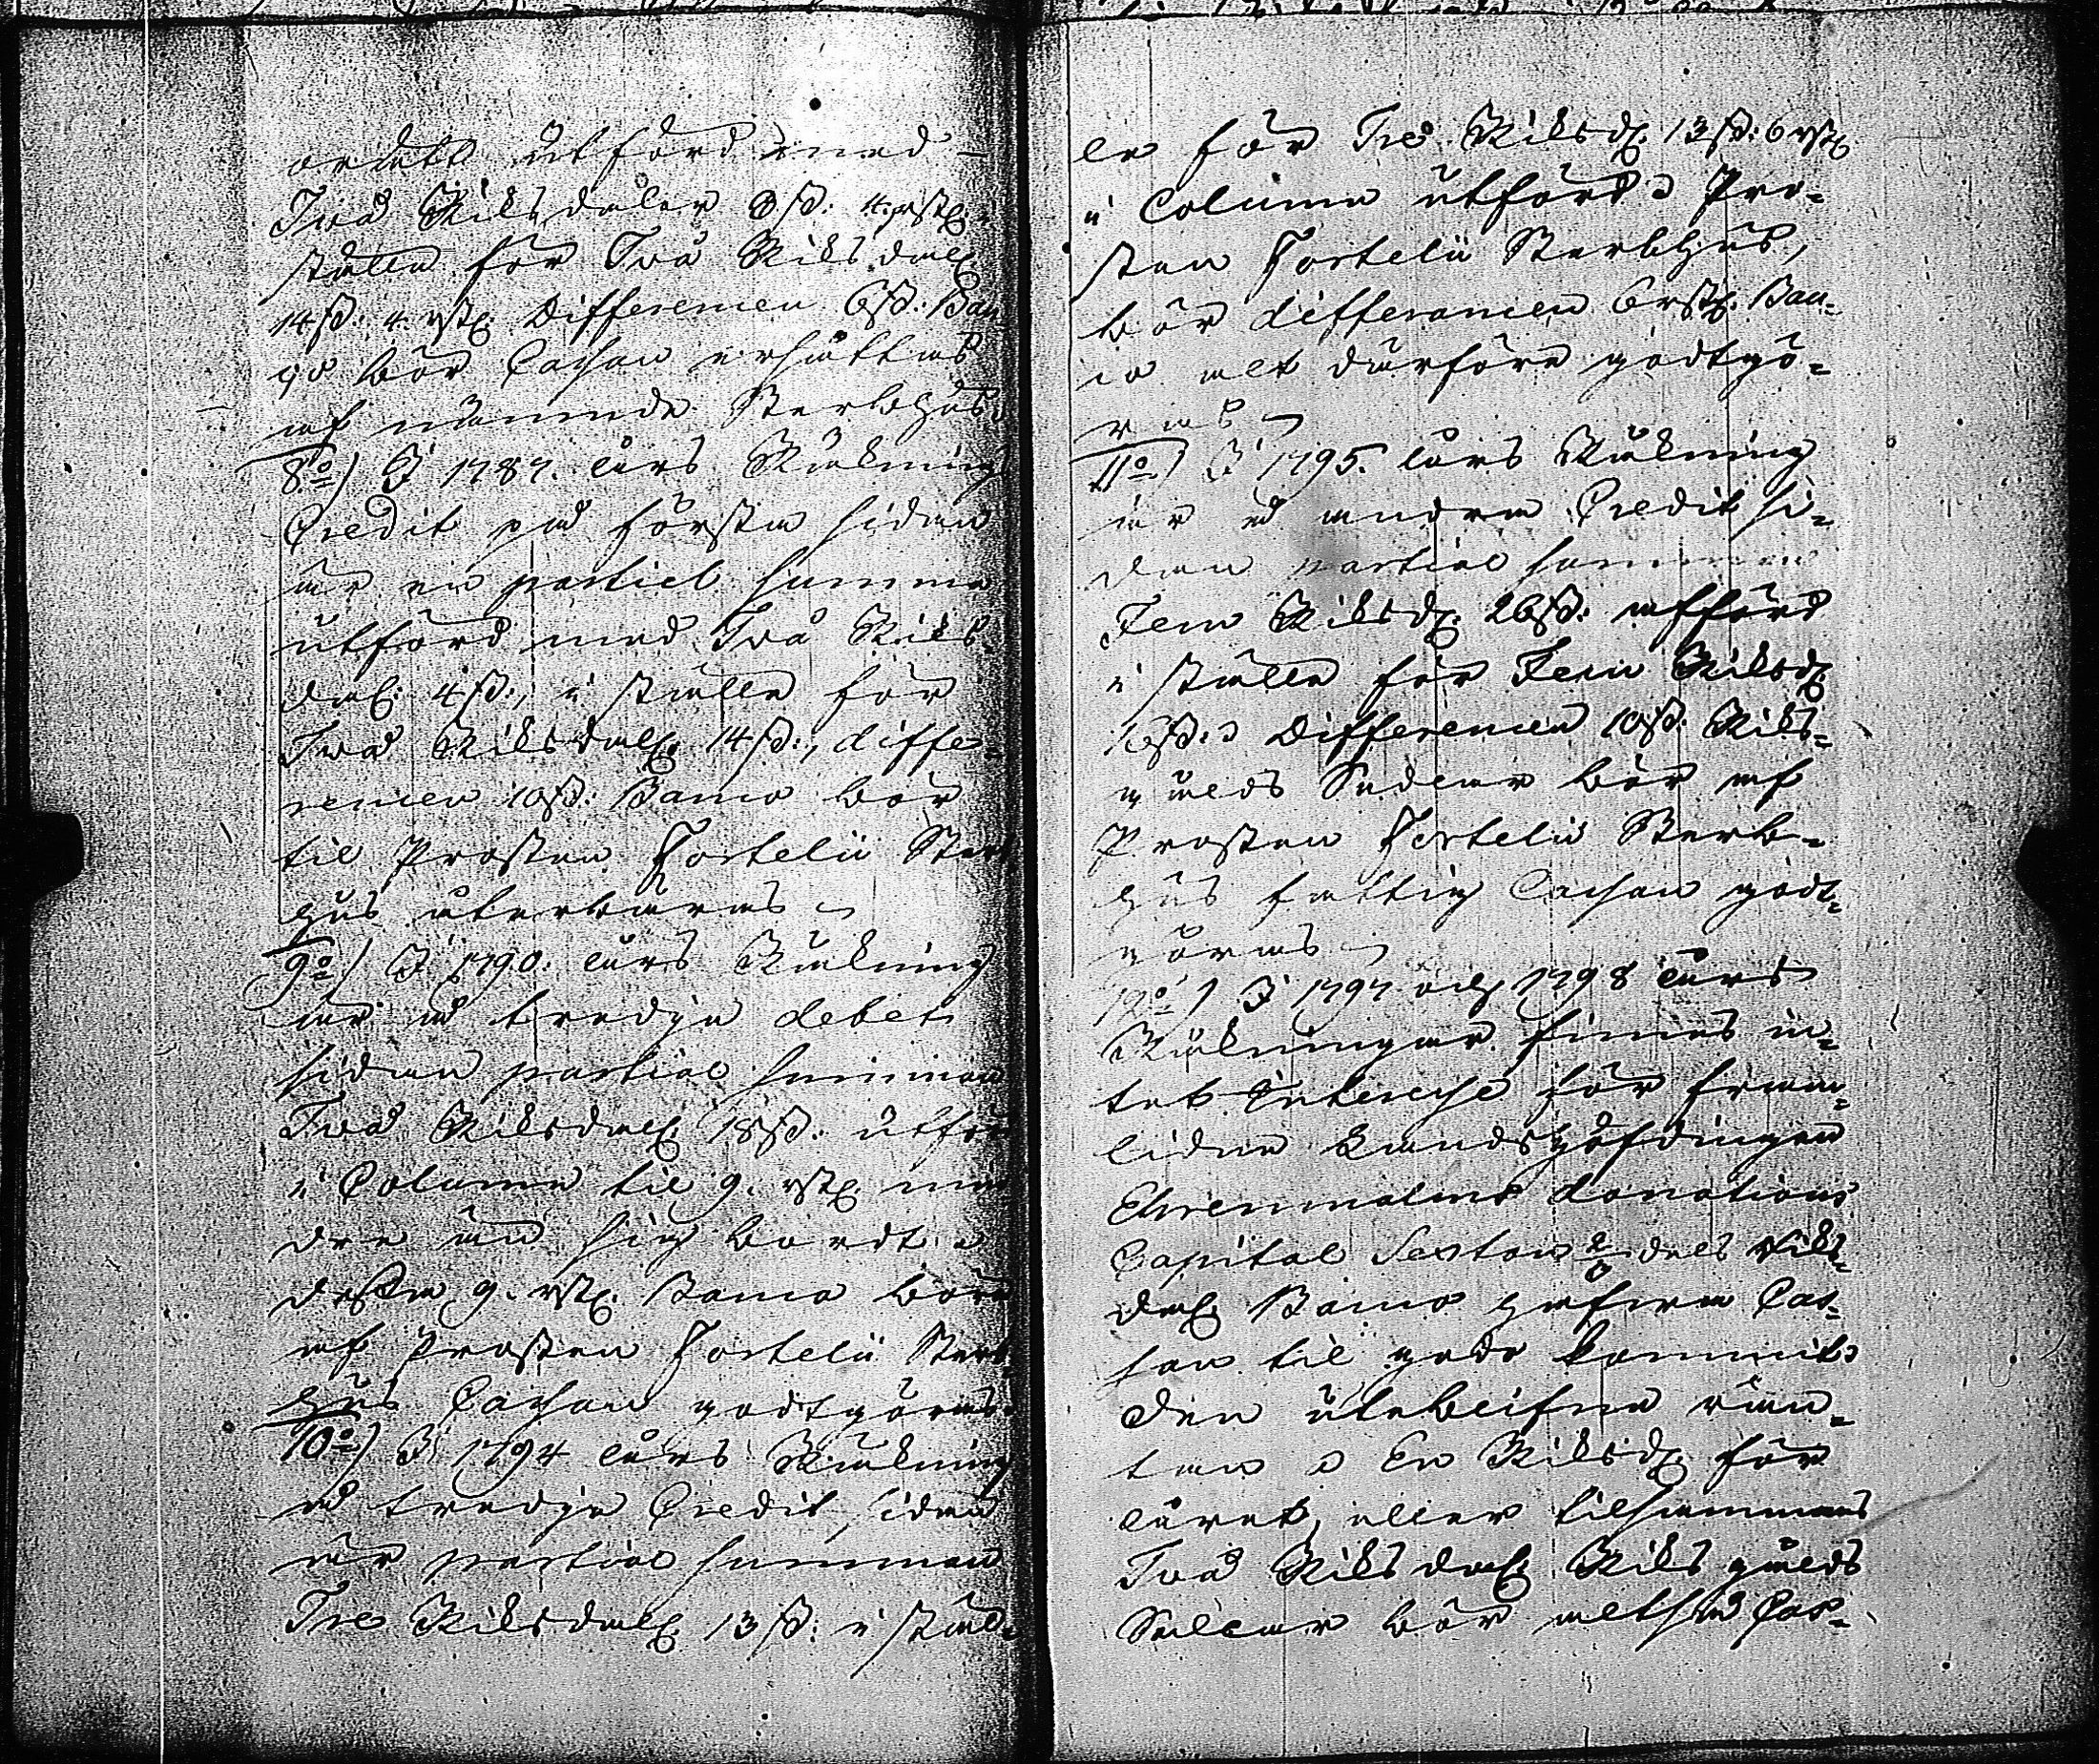 orätt utförd med
Två Riksdaler 8 ß: 4 rst: i
stället för Två Riksdal:
14 ß: 4 rst: Differencen 6 ß: Ban-
co bör Cassan ersättas
af nämnde Sterbhus
8:o) I 1787. års Räkning
Credit på första sidan
är en partiel summa
utförd med Två Riks-
dal: 4 ß:, i stället för
Två Riksdal: 14 ß:, diffe-
rencen 10 ß: Banco bör
til Prosten Fortelii Sterb
hus återbäras
9:o) I 1790. års Räkning
är å tredje debet
sidan partial summan
Två Riksdal: 18 ß: utförd
i Columne til 9. rst: min
dre än sig bordt
dessa 9. rst: Banco böra
af Prosten Fortelii Sterb
hus Cassan godtgöras.
10:o) I 1794 års Räkning
å tredje Credit sidan
är partial summan
Tre Riksdal: 13 ß: i stäl-
le för Tre Riksd: 13 ß: 6 rst:
i Columne utförd Pro-
sten Fortelii Sterbhus,
bör differencen 6 rst: Ban-
co alt därföre godtgö-
ras
11:o) I 1795. års Räkning
är å andra Credit si-
dan partial summan
Fem Riksd: 26 ß: afförd
i stället för Fem Riksd:
16 ß: Differencen 10 ß: Riks-
gälds Sedlar bör af
Prosten Fortelii Sterb-
hus fattig Cassan godt-
göras
12:o) I 1797 och 1798 års
Räkningar finnes in-
tet Interesse för fram-
lidne Landshöfdingen
Ehrenmalms donations
Capital Sexton 2/3 dels Riks
dal: Banco hafwa Cas-
san til godo kommit
Den uteblifna rän-
tan En Riksd: för
året, eller tilhsammans
Två Riksdal: Riksgälds
Sedlar bör altså Cas-